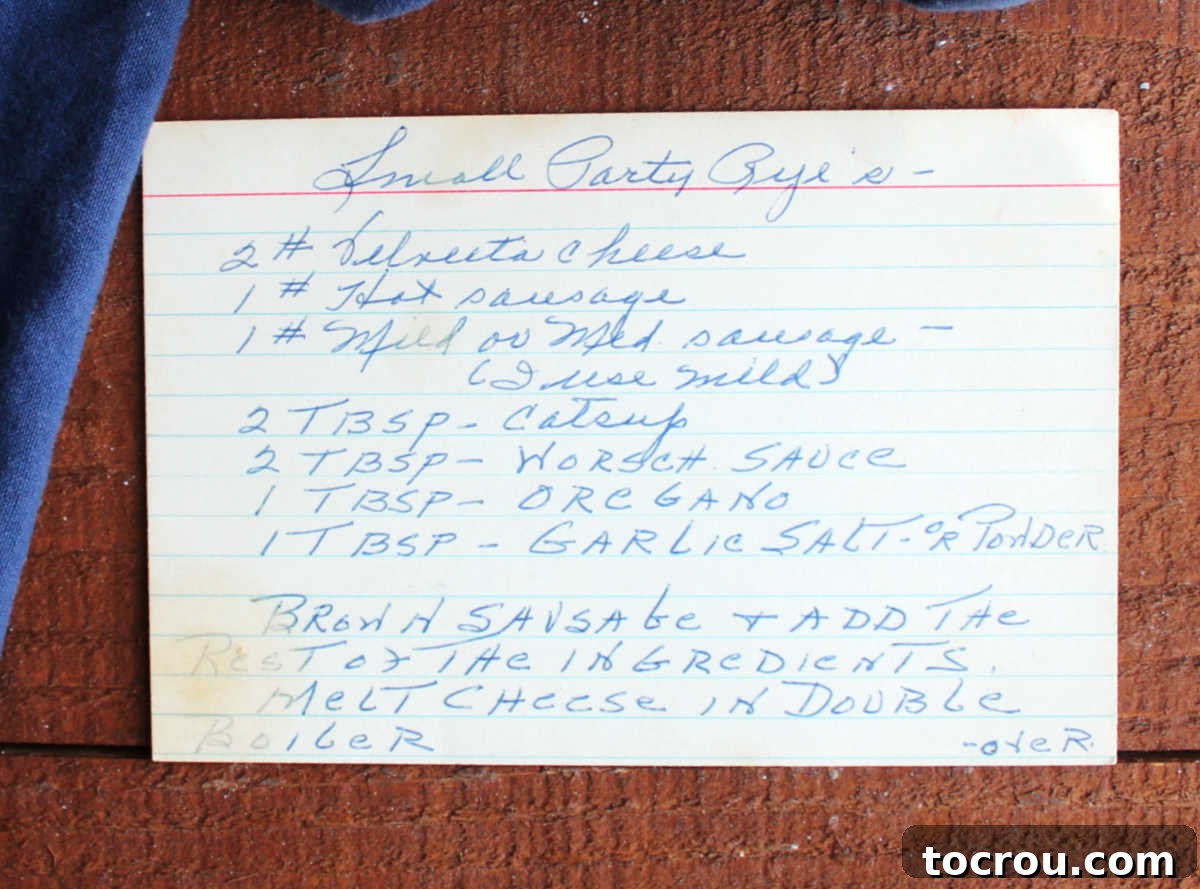 Small Party Rye's -
2 # Velveeta cheese
1 # Hot sausage
1 # Mild or Med. sausage -
(I use mild)
2 TBSP - Catsup
2 TBSP - WORSCH. SAUCE
1 TBSP - OREGANO
1 TBSP - GARLIC SALT - OR POWDER
BROWN SAUSAGE + ADD THE
REST OF THE INGREDIENTS.
MELT CHEESE IN DOUBLE
BOILER
-OVER.
tocrou.com